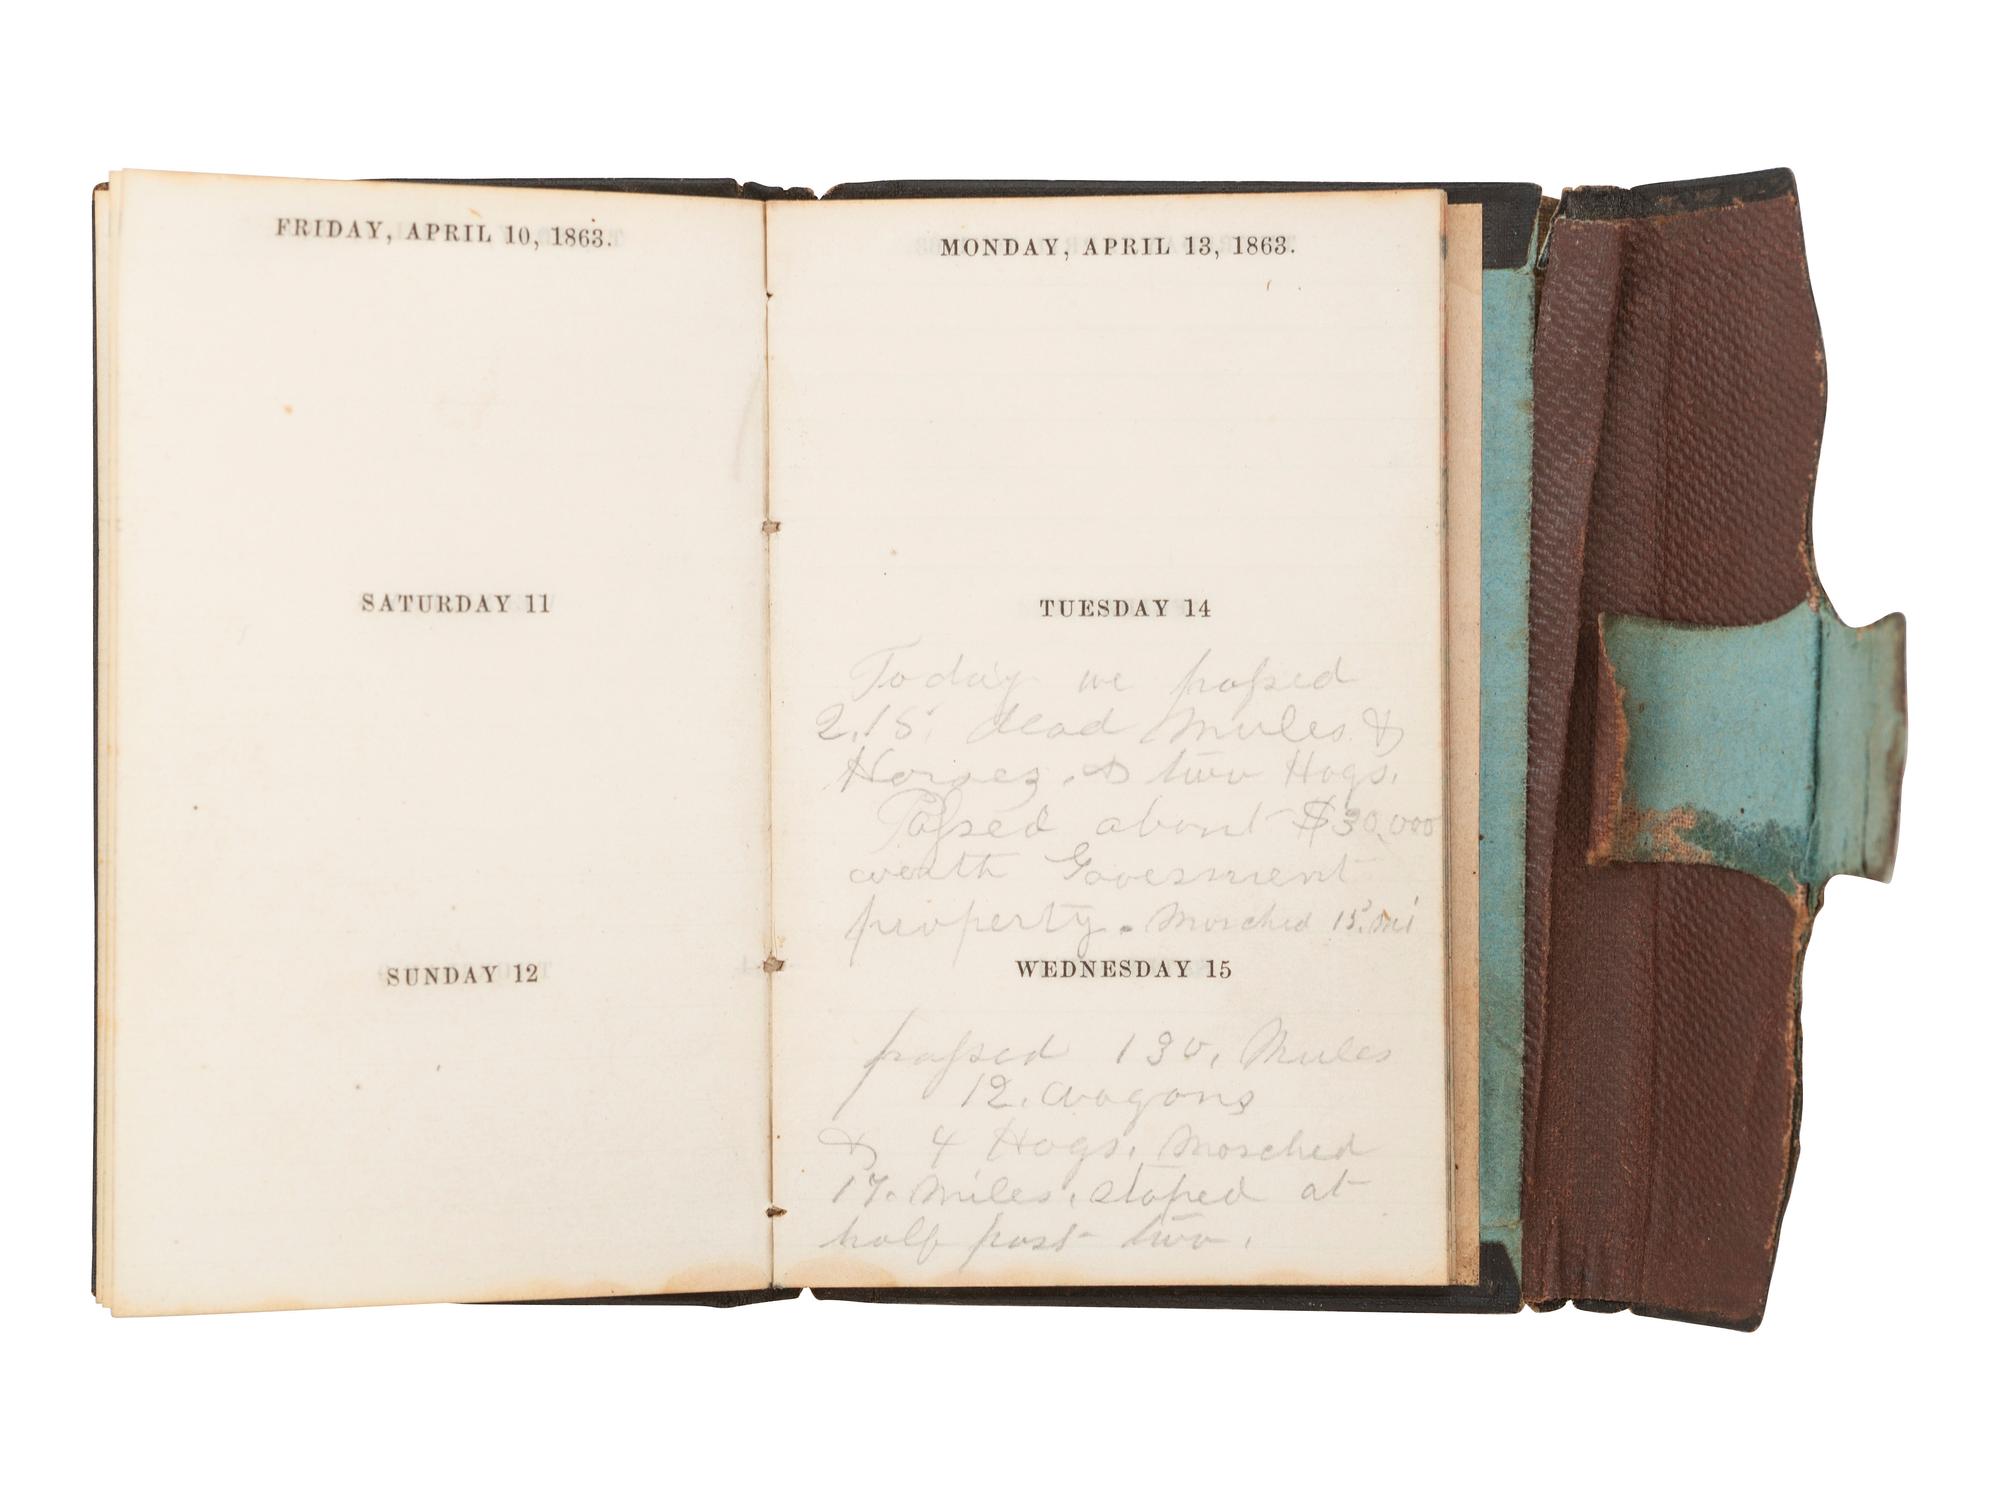 FRIDAY, APRIL 10, 1863.
SATURDAY 11
SUNDAY 12
MONDAY, APRIL 13, 1863.
TUESDAY 14
Today we paſsed
2.15. dead Mules &
Horses. & two Hogs.
Paſsed about $30,000
worth Goverment
property. Marched 15. mi
WEDNESDAY 15
paſsed 130. Mules
12. wagons
& 4 Hogs. Marched
17. Miles. stoped at
half past two.